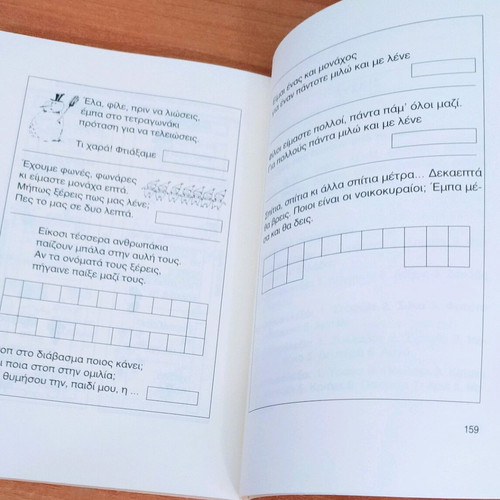 Έλα, φίλε, πριν να λιώσεις,
έμπα στο τετραγωνάκι
πρόταση για να τελειώσεις.
Τι χαρά! Φτιάξαμε
Έχουμε φωνές, φωνάρες
κι είμαστε μονάχα επτά.
Μήπως ξέρεις πως μας λένε;
Πες το μας σε δυο λεπτά.
Είκοσι τέσσερα ανθρωπάκια
παίζουν μπάλα στην αυλή τους.
Αν τα ονόματά τους ξέρεις,
πήγαινε παίξε μαζί τους.
στο διάβασμα ποιος κάνει;
ποια στοπ στην ομιλία;
θυμήσου την, παιδί μου, η ...
ένας και μονάχος
έναν πάντοτε μιλώ και με λένε
είμαστε πολλοί, πάντα πάμ΄ όλοι μαζί.
πολλούς πάντα μιλώ και με λένε
Σπίτια, σπίτια κι άλλα σπίτια μέτρα... Δεκαεπτά
θα βρεις. Ποιοι είναι οι νοικοκυραίοι; Έμπα μέ-
σα και θα δεις.
159